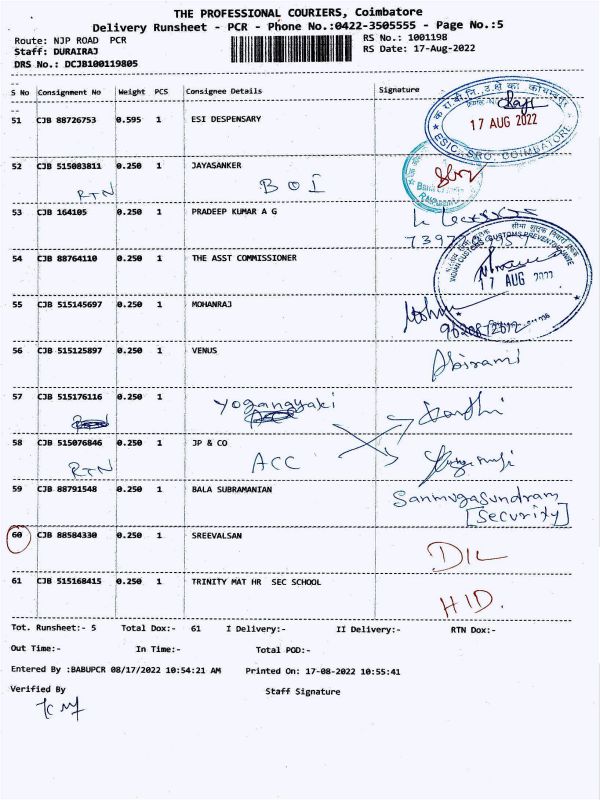 THE PROFESSIONAL COURIERS, Coimbatore
Delivery Runsheet - PCR - Phone No.:0422-3505555 - Page No.:5
Route: NJP ROAD PCR RS No.: 1001198
Staff: DURAIRAJ RS Date: 17-Aug-2022
DRS No.: DCJB100119805
S No Consignment No Weight PCS Consignee Details Signature
51 CJB 88726753 0.595 1 ESI DESPENSARY
17 AUG 2022
ESIC, SRO, COIMBATORE
52 CJB 515083811 0.250 1 JAYASANKER
RTN BOI
53 CJB 164105 0.250 1 PRADEEP KUMAR A G
54 CJB 88764110 0.250 1 THE ASST COMMISSIONER
17 AUG 2022
55 CJB 515145697 0.250 1 MOHANRAJ
56 CJB 515125897 0.250 1 VENUS
Abirami
57 CJB 515176116 0.250 1 Yoganayaki
58 CJB 515076846 0.250 1 JP & CO
RTN ACC
59 CJB 88791548 0.250 1 BALA SUBRAMANIAN Sanmugasundram
[Security]
60 CJB 88584330 0.250 1 SREEVALSAN
DIL
61 CJB 515168415 0.250 1 TRINITY MAT HR SEC SCHOOL
HID.
Tot. Runsheet:- 5 Total Dox:- 61 I Delivery:- II Delivery:- RTN Dox:-
Out Time:- In Time:- Total POD:-
Entered By :BABUPCR 08/17/2022 10:54:21 AM Printed On: 17-08-2022 10:55:41
Verified By Staff Signature